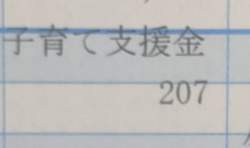 子育て支援金
207